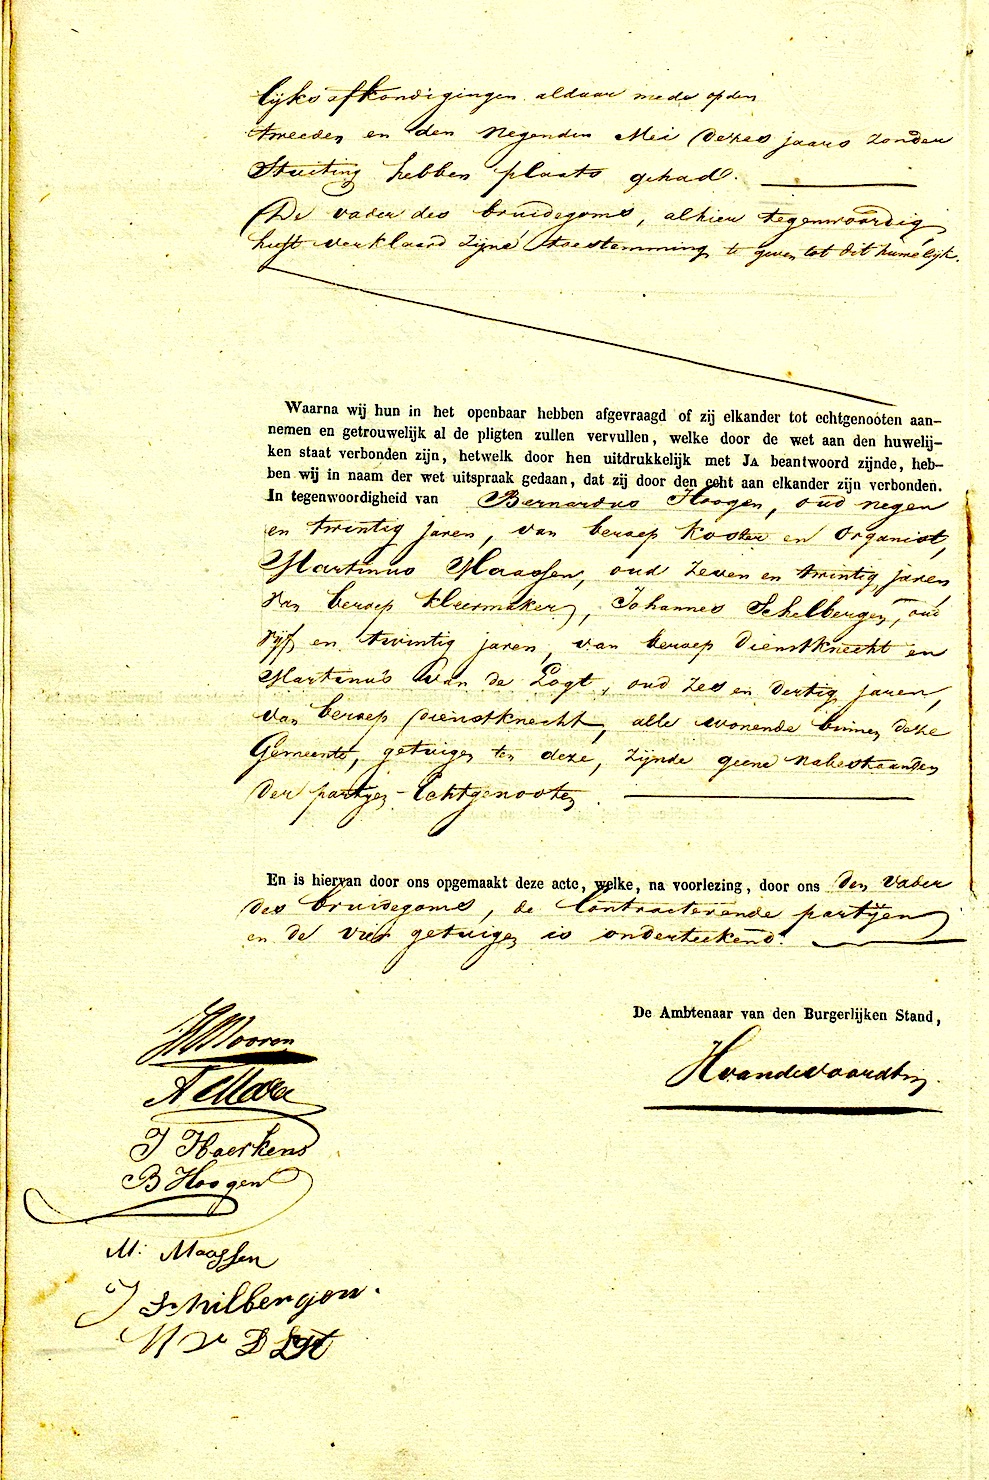 lijks afkondigingen aldaar mede op den
tweeden en den negenden Mei dezes jaars zonder
Stuiting hebben plaats gehad.
De vader des bruidegoms, alhier tegenwoordig,
heeft verklaard zijne toestemming te geven tot dit huwelijk.
Waarna wij hun in het openbaar hebben afgevraagd of zij elkander tot echtgenooten aan-
nemen en getrouwelijk al de pligten zullen vervullen, welke door de wet aan den huwelij-
ken staat verbonden zijn, hetwelk door hen uitdrukkelijk met JA beantwoord zijnde, heb-
ben wij in naam der wet uitspraak gedaan, dat zij door den echt aan elkander zijn verbonden.
In tegenwoordigheid van Bernardus Hoogen, oud negen
en twintig jaren, van beroep koster en organist,
Martinus Maassen, oud zeven en twintig jaren
van beroep kleermaker, Johannes Schelbergen, oud
vijf en twintig jaren, van beroep dienstknecht en
Martinus van de Logt, oud zes en dertig jaren,
van beroep dienstknecht, alle wonende binnen deze
Gemeente, getuigen ten deze, zijnde geene nabestaanden
der partijen - Echtgenooten.
En is hiervan door ons opgemaakt deze acte, welke, na voorlezing, door ons den vader
des bruidegoms, de Contracterende partijen
en de vier getuigen is onderteekend.
De Ambtenaar van den Burgerlijken Stand,
Hvandevoordt
Mooren
J Haerkens
B Hoogen
M: Maassen
J Schilbergen.
M v D Logt